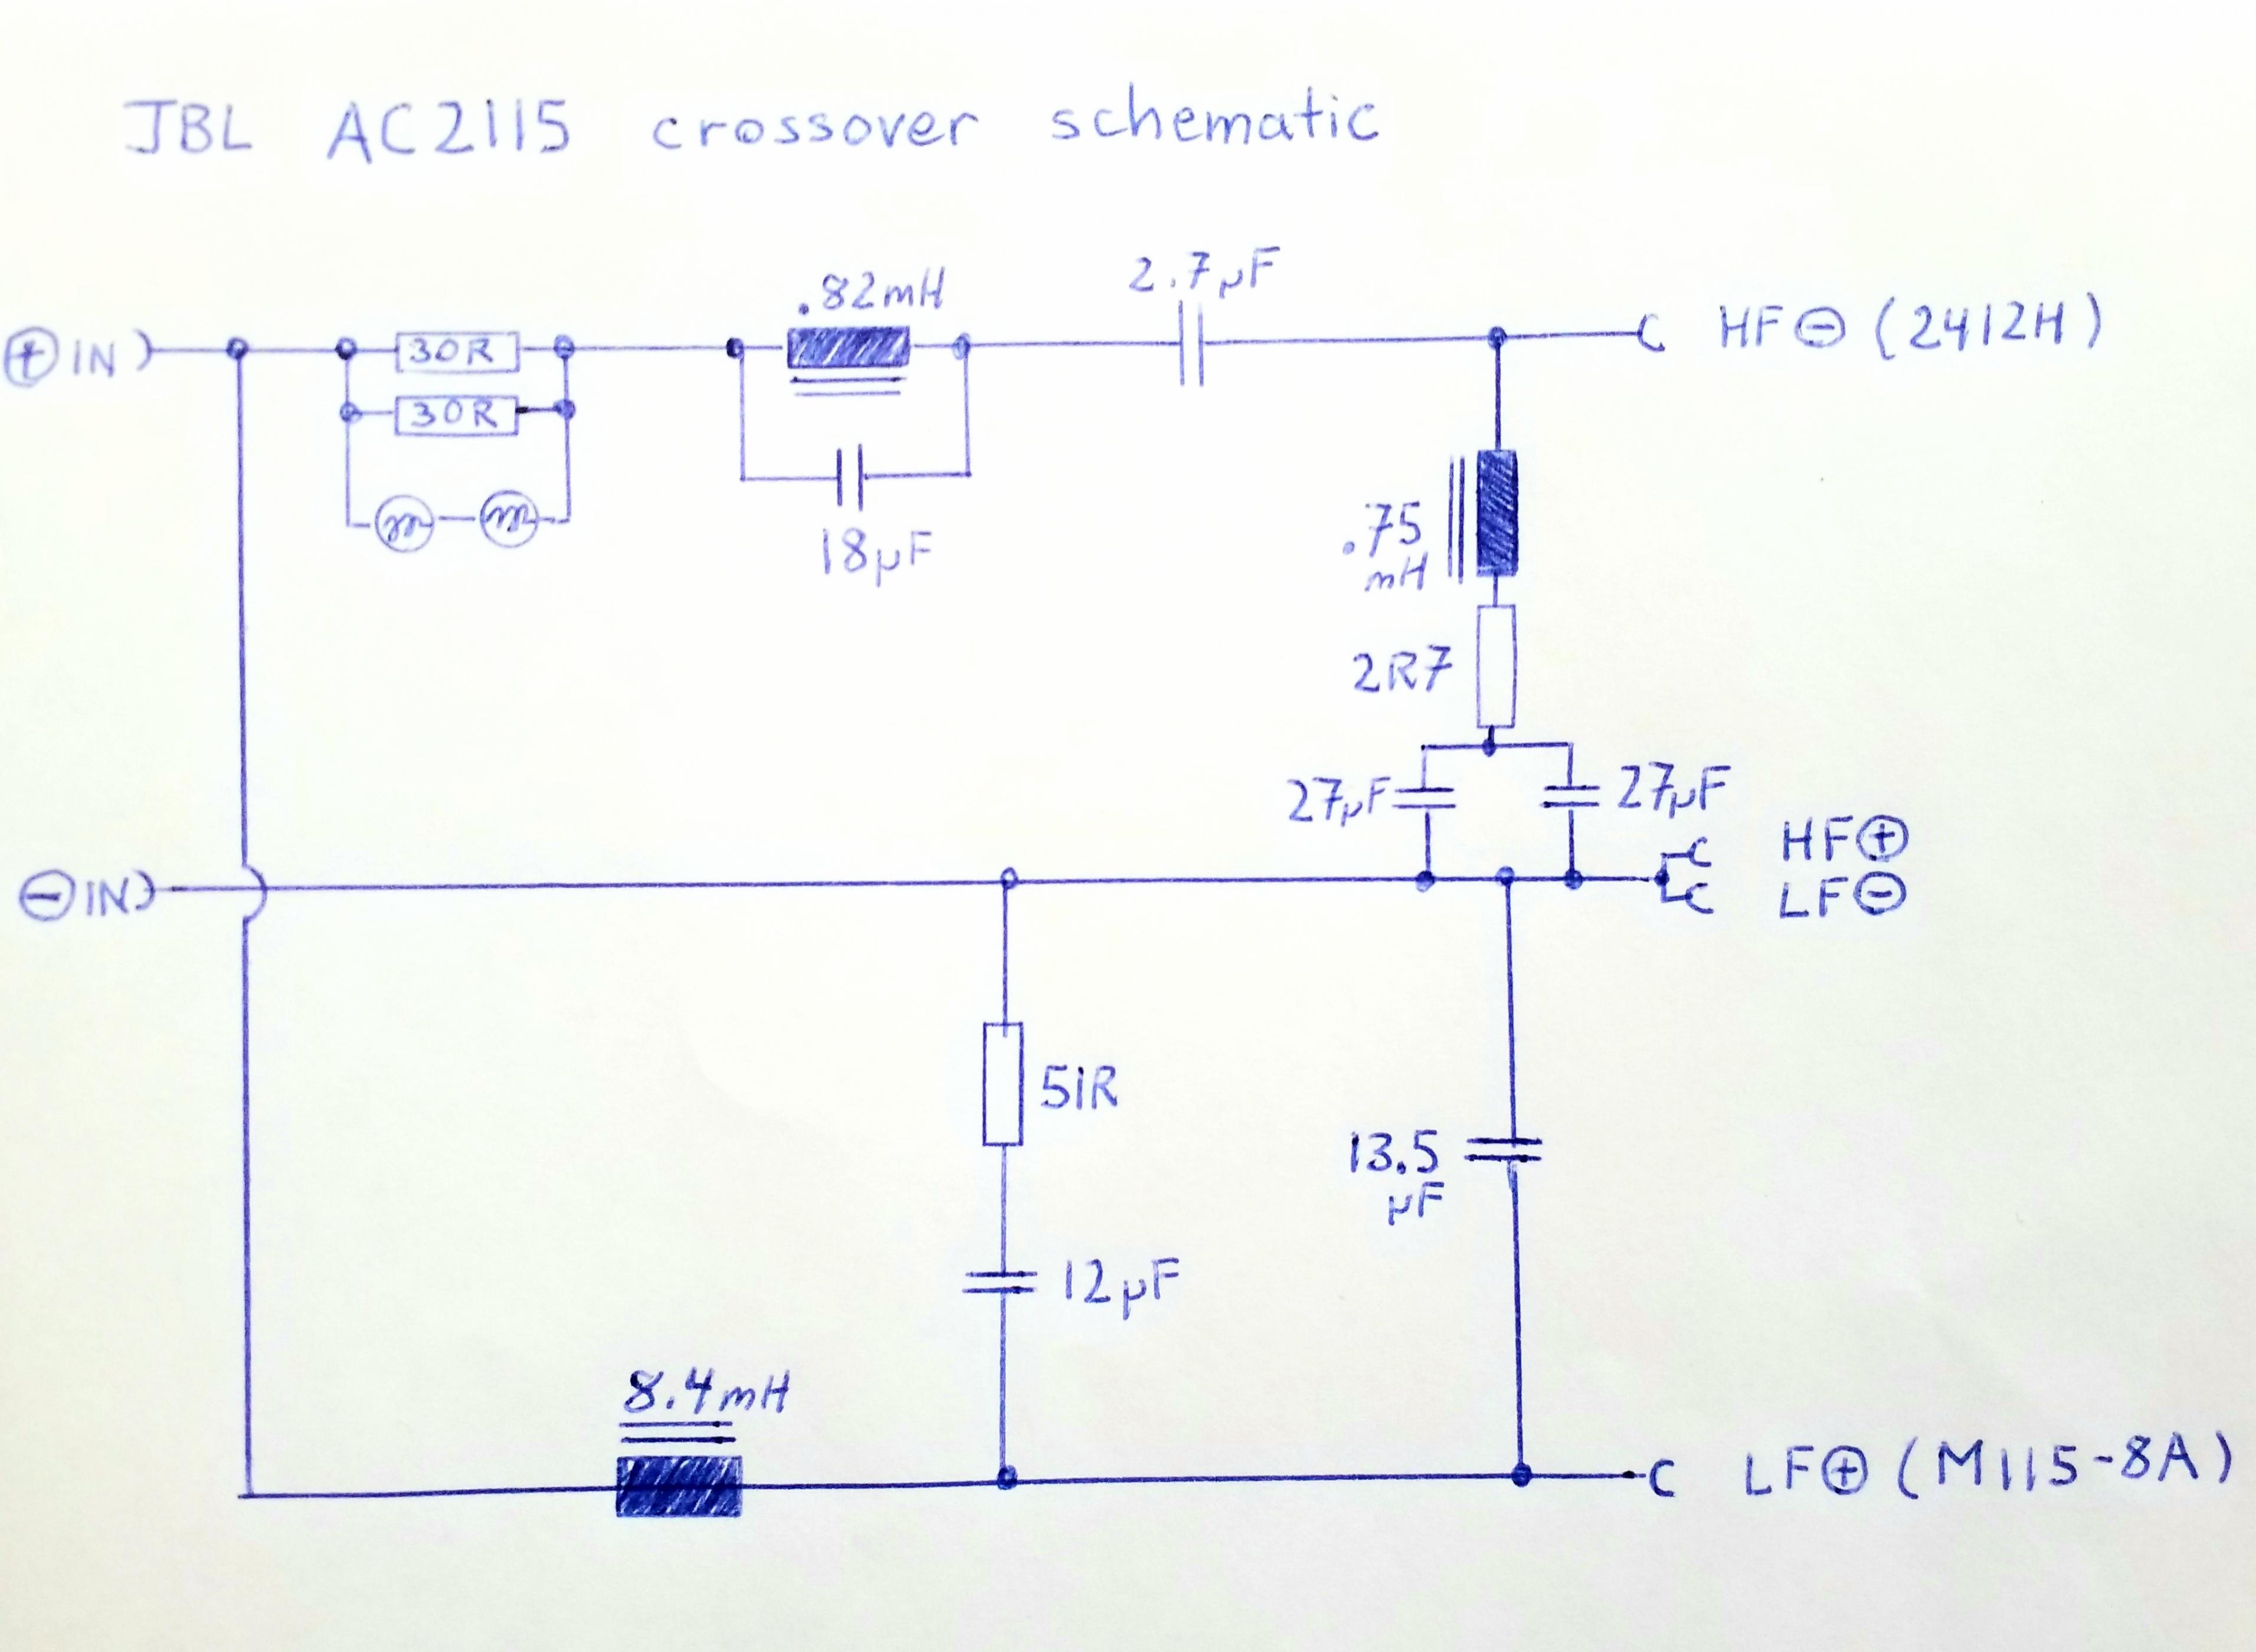 JBL AC2115 crossover schematic
.82mH
2.7µF
⊕ IN
30R
HF⊖ (2412H)
30R
18µF
.75
mH
2R7
27µF
27µF
HF⊕
⊖ IN
LF⊖
51R
13.5
µF
12µF
8.4mH
LF⊕ (M115-8A)